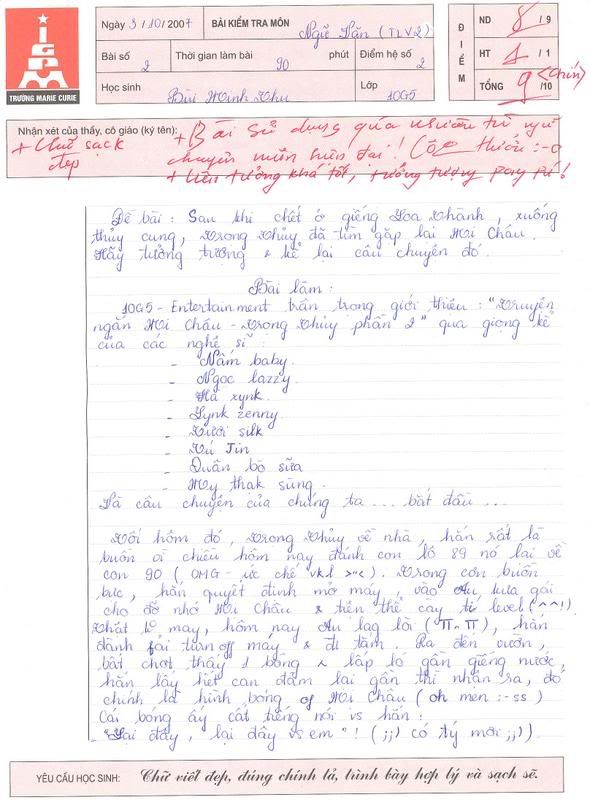 TRƯỜNG MARIE CURIE
Ngày 3 / 10 / 2007 BÀI KIỂM TRA MÔN Ngữ Văn (TLV2)
Bài số 2 Thời gian làm bài 90 phút Điểm hệ số 2
Học sinh Bùi Minh Thu Lớp 10G5
ĐIỂM
ND 8 / 9
HT 1 / 1
TỔNG 9 /10 (chín)
Nhận xét của thầy, cô giáo (ký tên):
+ Chữ sạch đẹp
+ Bài sử dụng quá nhiều từ ngữ
chuyên môn hiện đại! (Cô thiếu :-o
+ Liên tưởng khá tốt, tưởng tượng pay pú!
Đề bài : Sau khi chết ở giếng Loa Thành, xuống
thủy cung, Trọng Thủy đã tìm gặp lại Mị Châu.
Hãy tưởng tượng & kể lại câu chuyện đó.
Bài làm :
10G5 - Entertainment trân trọng giới thiệu : "Truyện
ngắn Mị Châu - Trọng Thủy phần 2" qua giọng kể
của các nghệ sĩ :
- Nấm baby.
- Ngọc lazzy.
- Hà xynk.
- Lynk zenny.
- Tười silk
- Tú Jin
- Quân bò sữa
- My thak sùng.
Và câu chuyện của chúng ta ... bắt đầu ...
Tối hôm đó, Trọng Thủy về nhà, hắn rất là
buồn vì chiều hôm nay đánh con lô 89 nó lại về
con 90 (OMG - ức chế vkl >"<). Trong cơn buồn
bực, hắn quyết định mở máy, vào Au, lừa gái
cho đỡ nhớ Mị Châu & tiện thể cày tí level (^^!).
Nhất là may, hôm nay Au lag lòi (π.π), hắn
đành fải turn off máy & đi tắm. Ra đến vườn,
bất chợt thấy 1 bóng ~ lấp ló gần giếng nước,
hắn lấy hết can đảm lại gần thì nhận ra, đó
chính là hình bóng of Mị Châu (oh men :-ss)
Cái bóng ấy cất tiếng nói vs hắn:
- "Lại đây, lại đây vs em"! (;;) có tý mới ;;)).
YÊU CẦU HỌC SINH: Chữ viết đẹp, đúng chính tả, trình bày hợp lý và sạch sẽ.